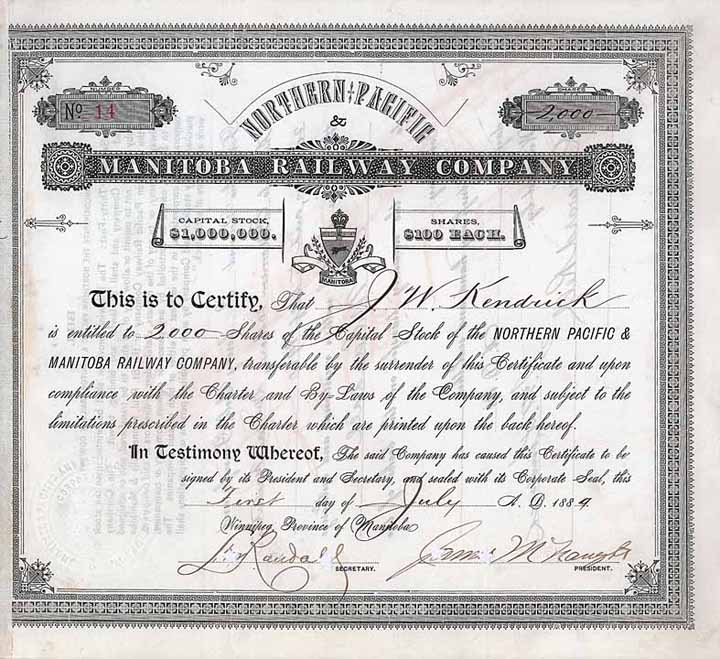 NUMBER
No 14
SHARES
2,000
NORTHERN PACIFIC
&
MANITOBA RAILWAY COMPANY
CAPITAL STOCK,
$1,000,000.
SHARES,
$100 EACH.
MANITOBA
This is to Certify, That J W. Kendrick
is entitled to 2000 Shares of the Capital Stock of the NORTHERN PACIFIC &
MANITOBA RAILWAY COMPANY, transferable by the surrender of this Certificate and upon
compliance with the Charter and By-Laws of the Company, and subject to the
limitations prescribed in the Charter which are printed upon the back hereof.
In Testimony Whereof, The said Company has caused this Certificate to be
signed by its President and Secretary, and sealed with its Corporate Seal, this
First day of July A. D. 1889.
Winnipeg, Province of Manitoba
SECRETARY.
PRESIDENT.